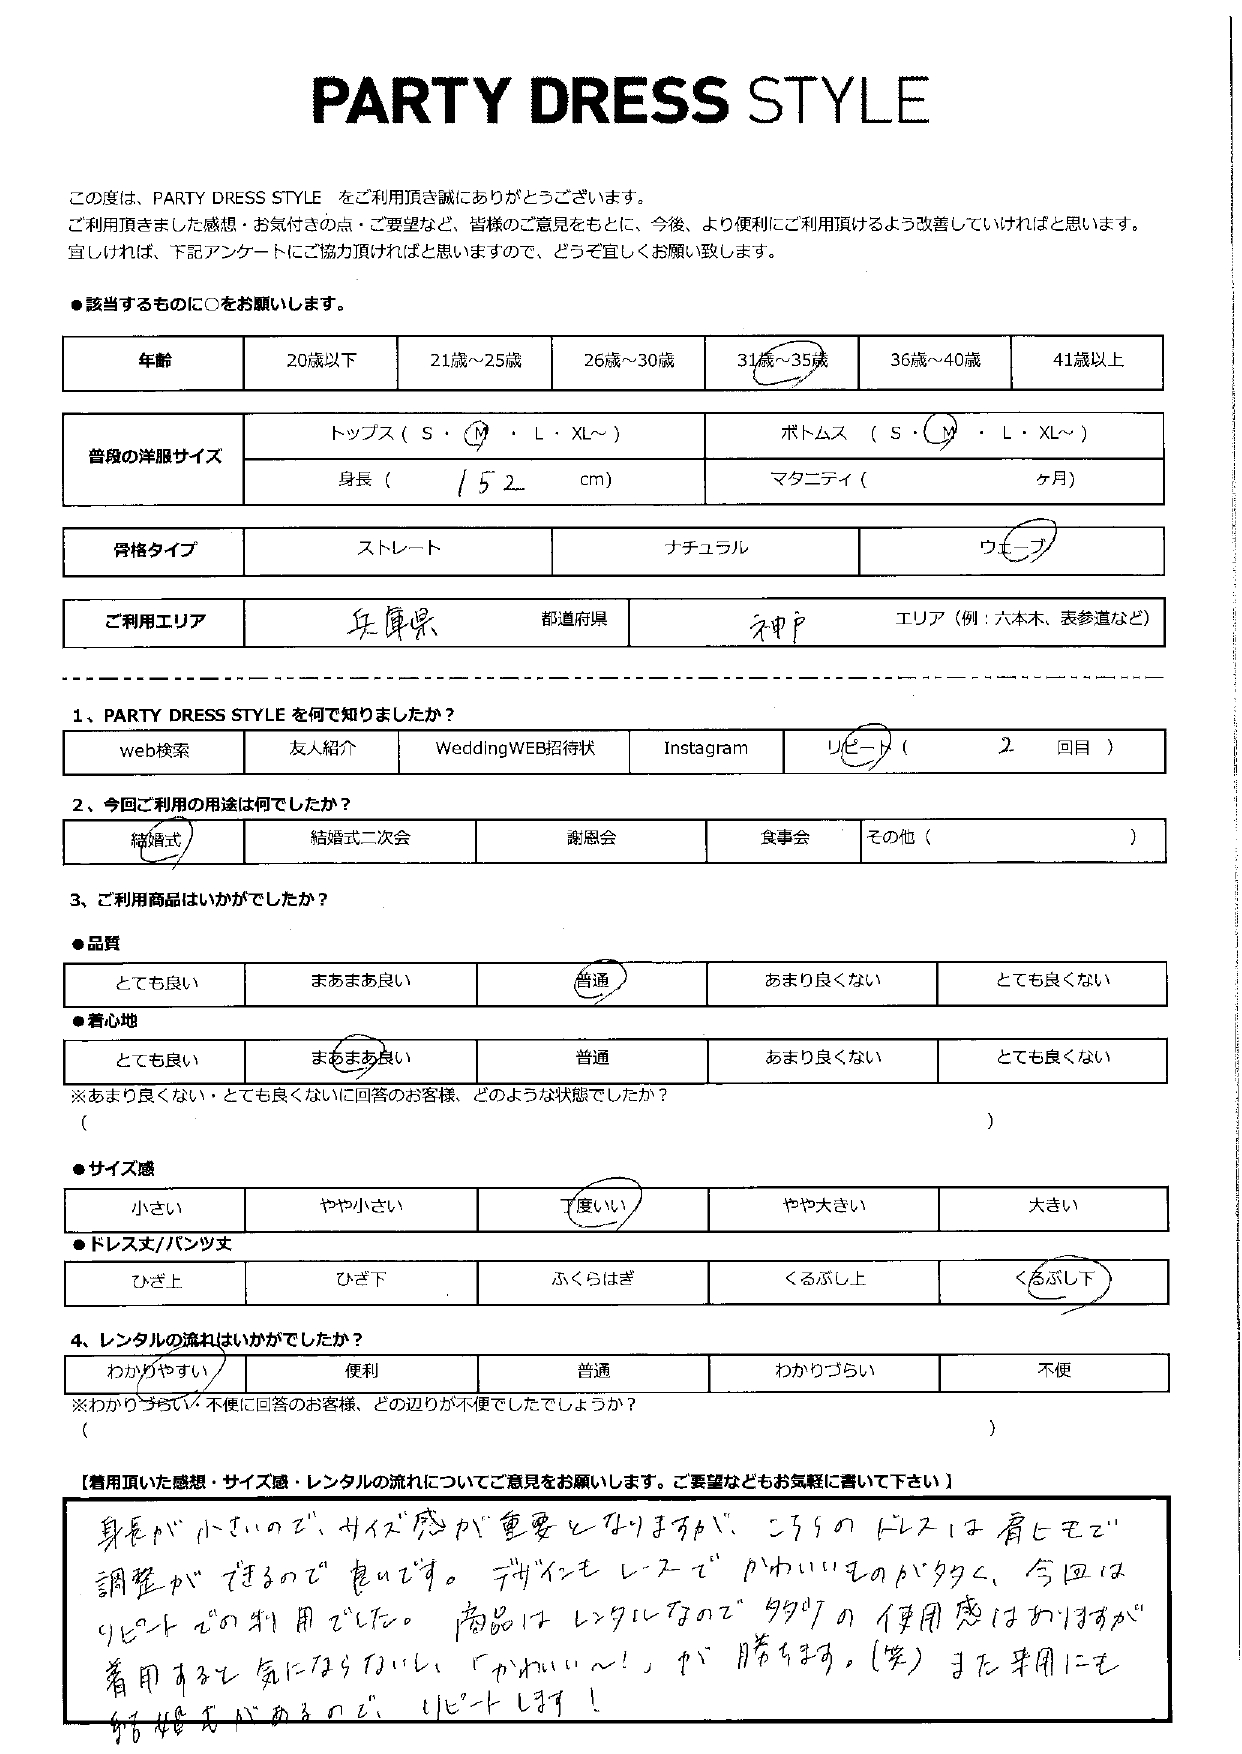 PARTY DRESS STYLE
この度は、PARTY DRESS STYLE をご利用頂き誠にありがとうございます。
ご利用頂きました感想・お気付きの点・ご要望など、皆様のご意見をもとに、今後、より便利にご利用頂けるよう改善していければと思います。
宜しければ、下記アンケートにご協力頂ければと思いますので、どうぞ宜しくお願い致します。
●該当するものに○をお願いします。
年齢 20歳以下 21歳～25歳 26歳～30歳 31歳～35歳 36歳～40歳 41歳以上
普段の洋服サイズ
トップス ( S ・ M ・ L ・ XL～ ) ボトムス ( S ・ M ・ L ・ XL～ )
身長 ( 152 cm) マタニティ ( ヶ月)
骨格タイプ ストレート ナチュラル ウェーブ
ご利用エリア 兵庫県 都道府県 神戸 エリア（例：六本木、表参道など）
1、PARTY DRESS STYLE を何で知りましたか？
web検索 友人紹介 WeddingWEB招待状 Instagram リピート ( 2 回目 )
2、今回ご利用の用途は何でしたか？
結婚式 結婚式二次会 謝恩会 食事会 その他 ( )
3、ご利用商品はいかがでしたか？
●品質
とても良い まあまあ良い 普通 あまり良くない とても良くない
●着心地
とても良い まあまあ良い 普通 あまり良くない とても良くない
※あまり良くない・とても良くないに回答のお客様、どのような状態でしたか？
( )
●サイズ感
小さい やや小さい 丁度いい やや大きい 大きい
●ドレス丈/パンツ丈
ひざ上 ひざ下 ふくらはぎ くるぶし上 くるぶし下
4、レンタルの流れはいかがでしたか？
わかりやすい 便利 普通 わかりづらい 不便
※わかりづらい・不便に回答のお客様、どの辺りが不便でしたでしょうか？
( )
【着用頂いた感想・サイズ感・レンタルの流れについてご意見をお願いします。ご要望などもお気軽に書いて下さい】
身長が小さいので、サイズ感が重要となりますが、こちらのドレスは肩ヒモで
調整ができるので良いです。デザインもレースでかわいいものが多く、今回は
リピートでの利用でした。商品はレンタルなので多少の使用感はありますが
着用すると気にならないし、「かわいい～！」が勝ちます。(笑) また来月にも
結婚式があるので、リピートします！